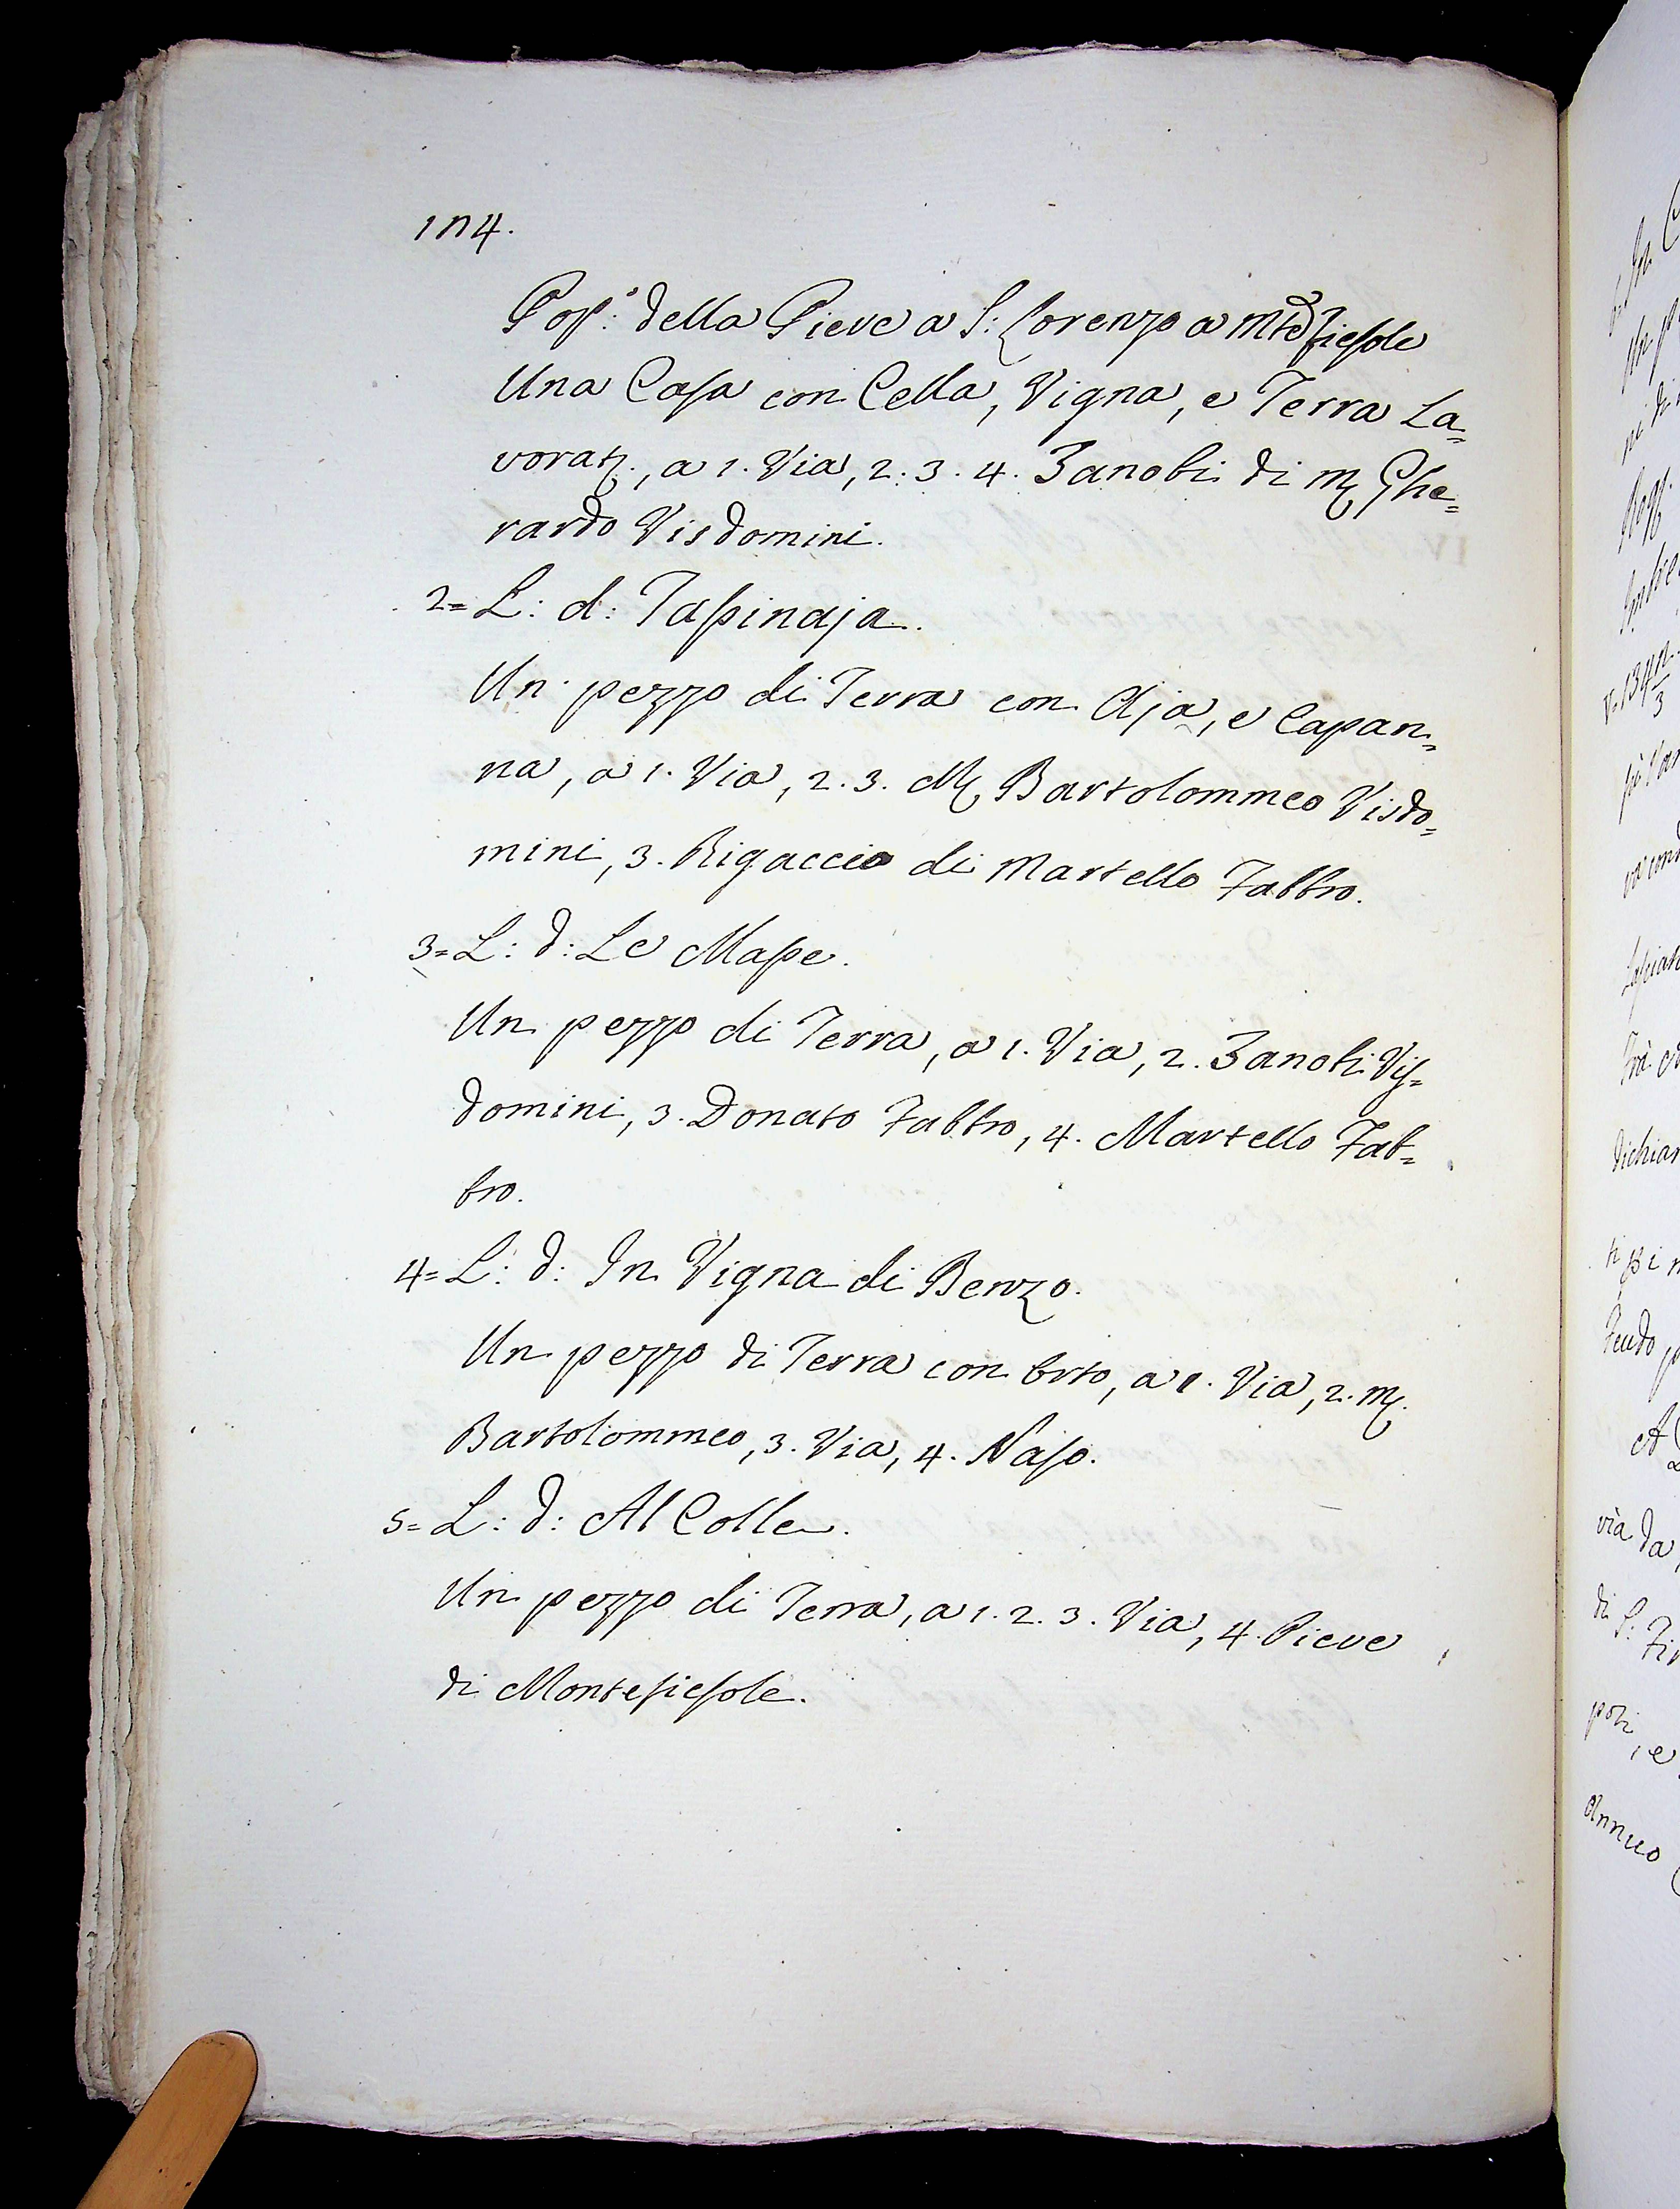 174.
Pop:º della Pieve a S: Lorenzo a Mte Fiesole
Una Casa con Cella, Vigna, e Terra La=
vorat:, a 1. Via, 2. 3. 4. Zanobi di M. Ghe=
rardo Visdomini.
2= L: d: Tassinaja.
Un pezzo di Terra con Aja, e Capan=
na, a 1. Via, 2. 3. M. Bartolommeo Visdo=
mini, 3. Rigaccio di Martello Fabbro.
3= L: d: Le Masse.
Un pezzo di Terra, a 1. Via, 2. Zanobi Vis=
domini, 3. Donato Fabbro, 4. Martello Fab=
bro.
4= L: d: In Vigna di Benzo.
Un pezzo di Terra con Orto, a 1. Via, 2. M.
Bartolommeo, 3. Via, 4. Naso.
5= L: d: Al Colle.
Un pezzo di Terra, a 1. 2. 3. Via, 4. Pieve
di Montefiesole.